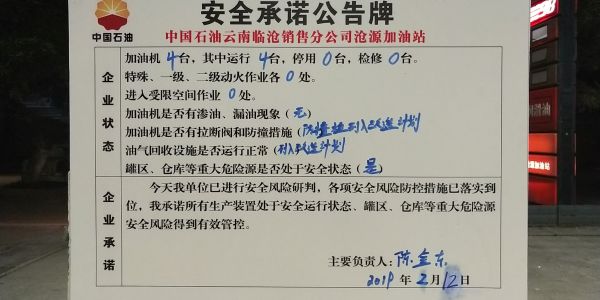 安全承诺公告牌
中国石油
中国石油云南临沧销售分公司沧源加油站
企业状态
加油机 4 台，其中运行 4 台，停用 0 台，检修 0 台。
特殊、一级、二级动火作业各 0 处。
进入受限空间作业 0 处。
加油机是否有渗油、漏油现象（无）
加油机是否有拉断阀和防撞措施（防撞柱列入改造计划
油气回收设施是否运行正常（列入改造计划
罐区、仓库等重大危险源是否处于安全状态（是）
企业承诺
今天我单位已进行安全风险研判，各项安全风险防控措施已落实到
位，我承诺所有生产装置处于安全运行状态、罐区、仓库等重大危险源
安全风险得到有效管控。
主要负责人：陈金东
2019 年 2 月 12 日